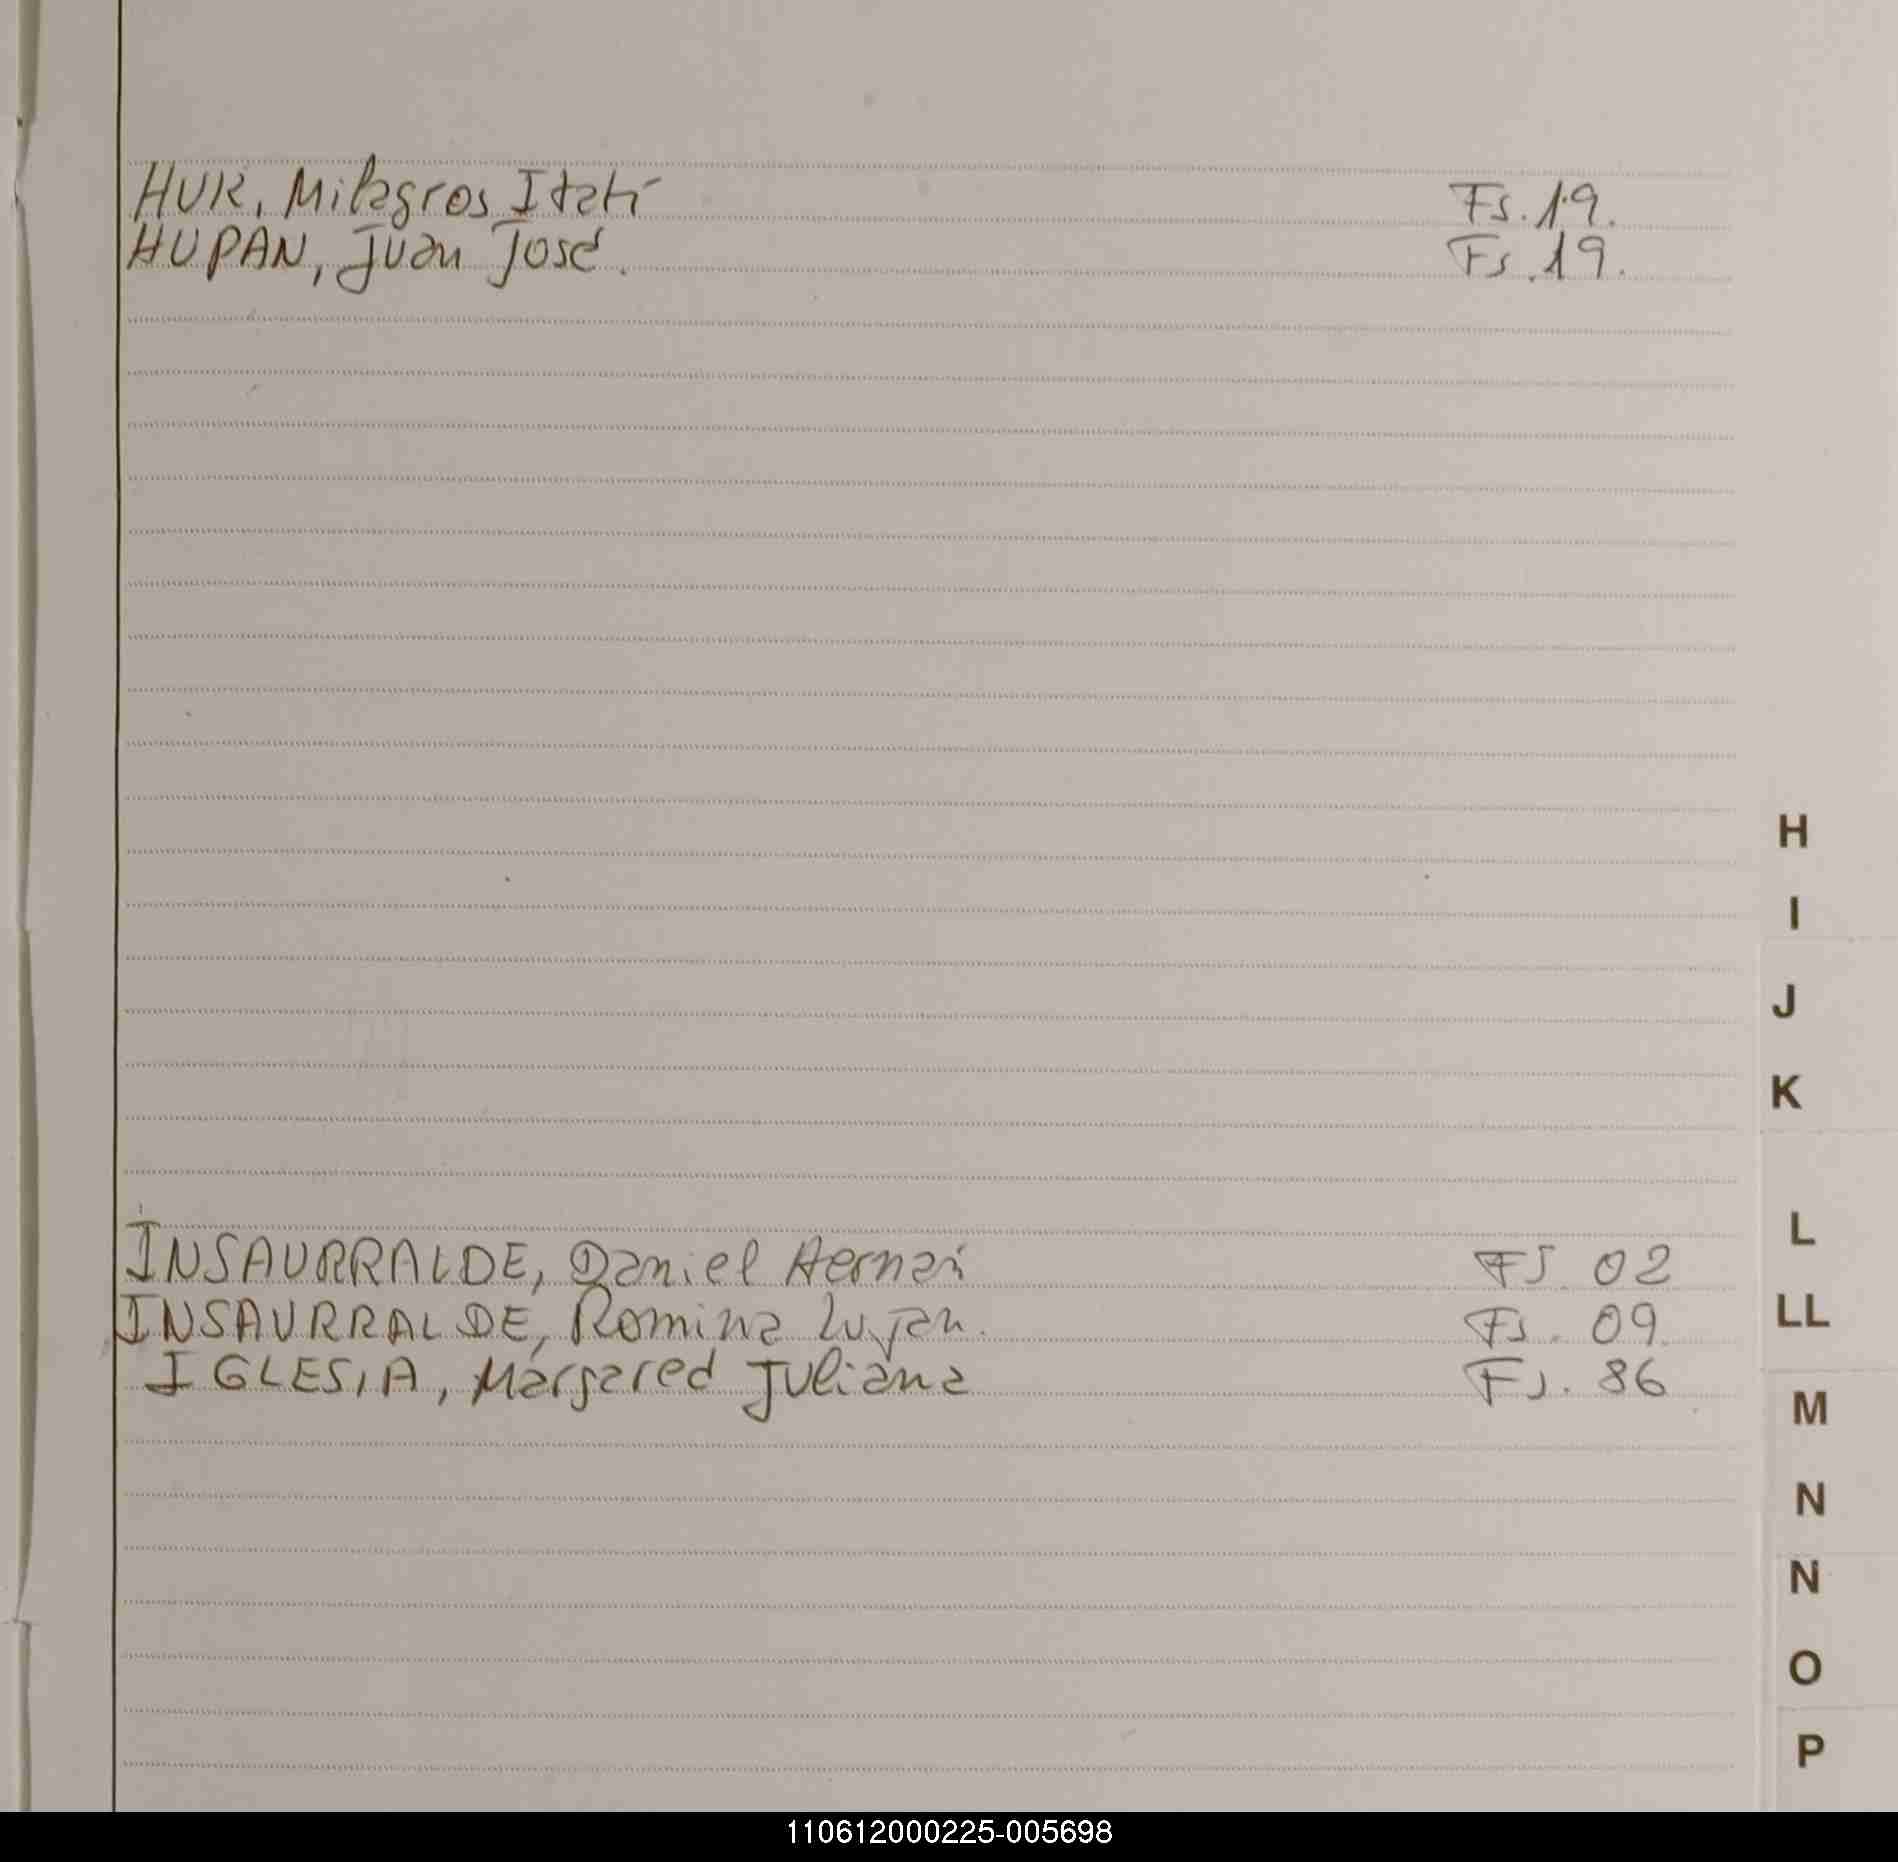 HUK, Milagros Itatí Fs. 19.
HUPAN, Juan José. Fs. 19.
H
I
J
K
INSAURRALDE, Daniel Hernán Fs. 02
L
INSAURRALDE, Romina Lujan. Fs. 09.
LL
IGLESIA, Margared Juliana Fs. 86
M
N
N
O
P
110612000225-005698